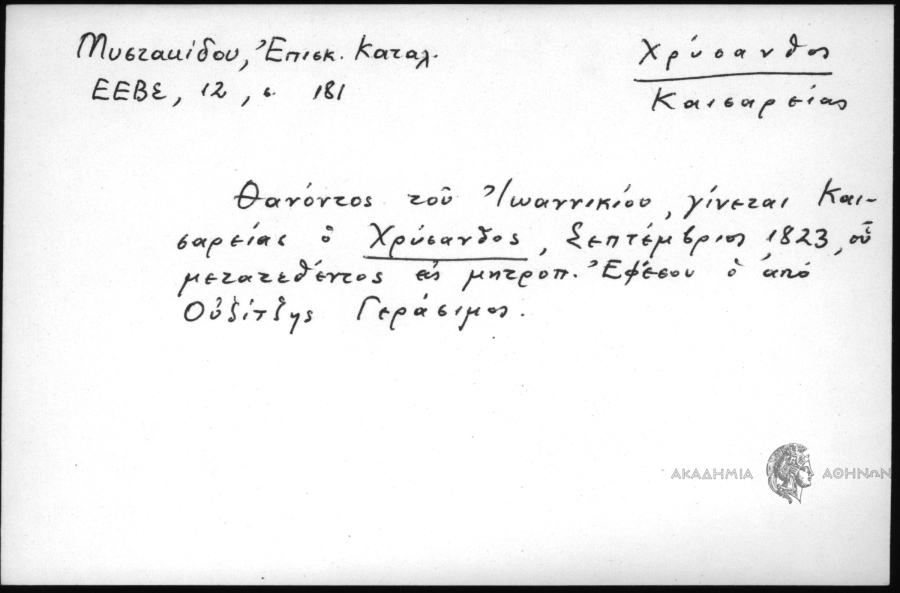 Μυστακίδου, Ἐπισκ. Καταλ.
ΕΕΒΣ, 12, σ. 181
Χρύσανθος
Καισαρείας
Θανόντος τοῦ Ἰωαννικίου, γίνεται Και-
σαρείας ὁ Χρύσανθος, Σεπτέμβριος 1823, οὗ
μετατεθέντος εἰς μητροπ. Ἐφέσου ὁ ἀπό
Οὐζίτζης Γεράσιμος.
ΑΚΑΔΗΜΙΑ ΑΘΗΝΩΝ